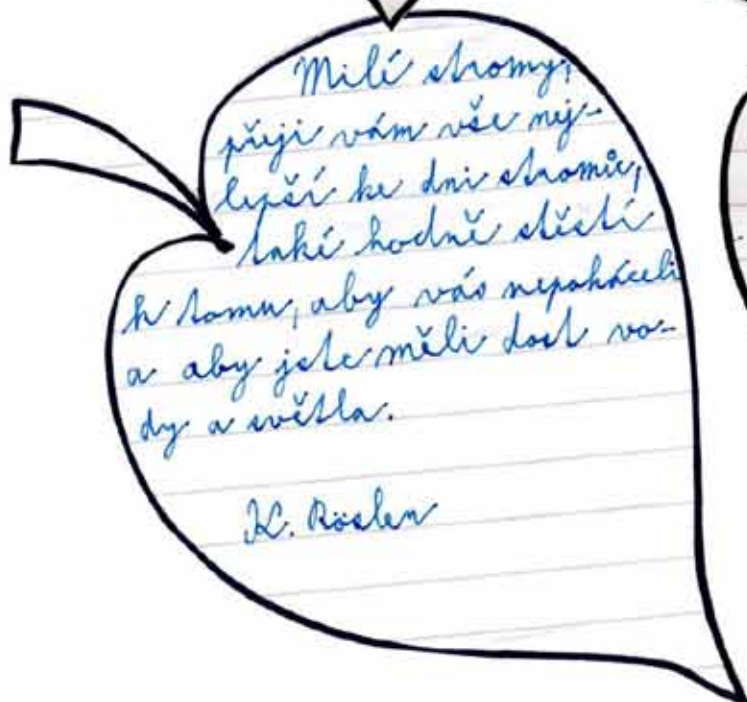 Milé stromy,
přeji vám vše nej-
lepší ke dni stromů,
také hodně štěstí
k tomu, aby vás nepokáceli
a aby jste měli dost vo-
dy a světla.
K. Röslen